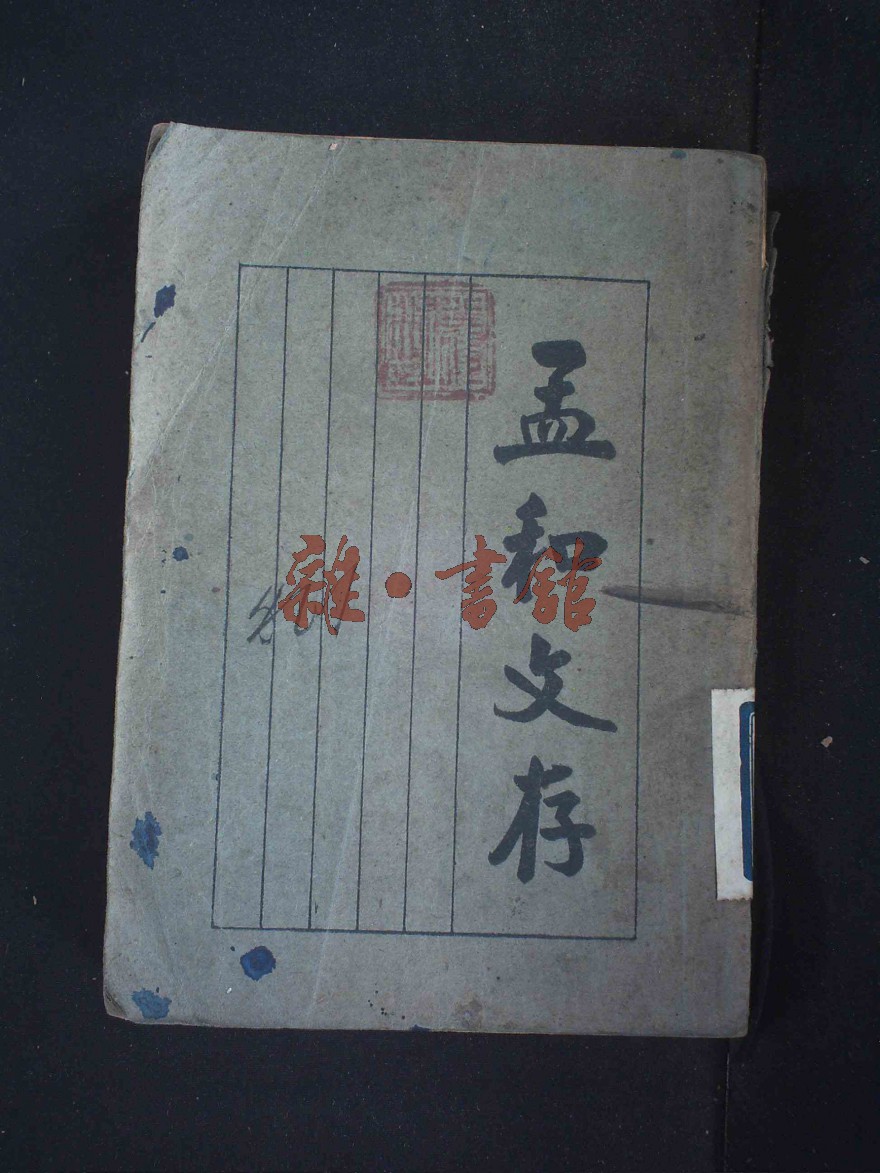 孟和文存
雜·書館